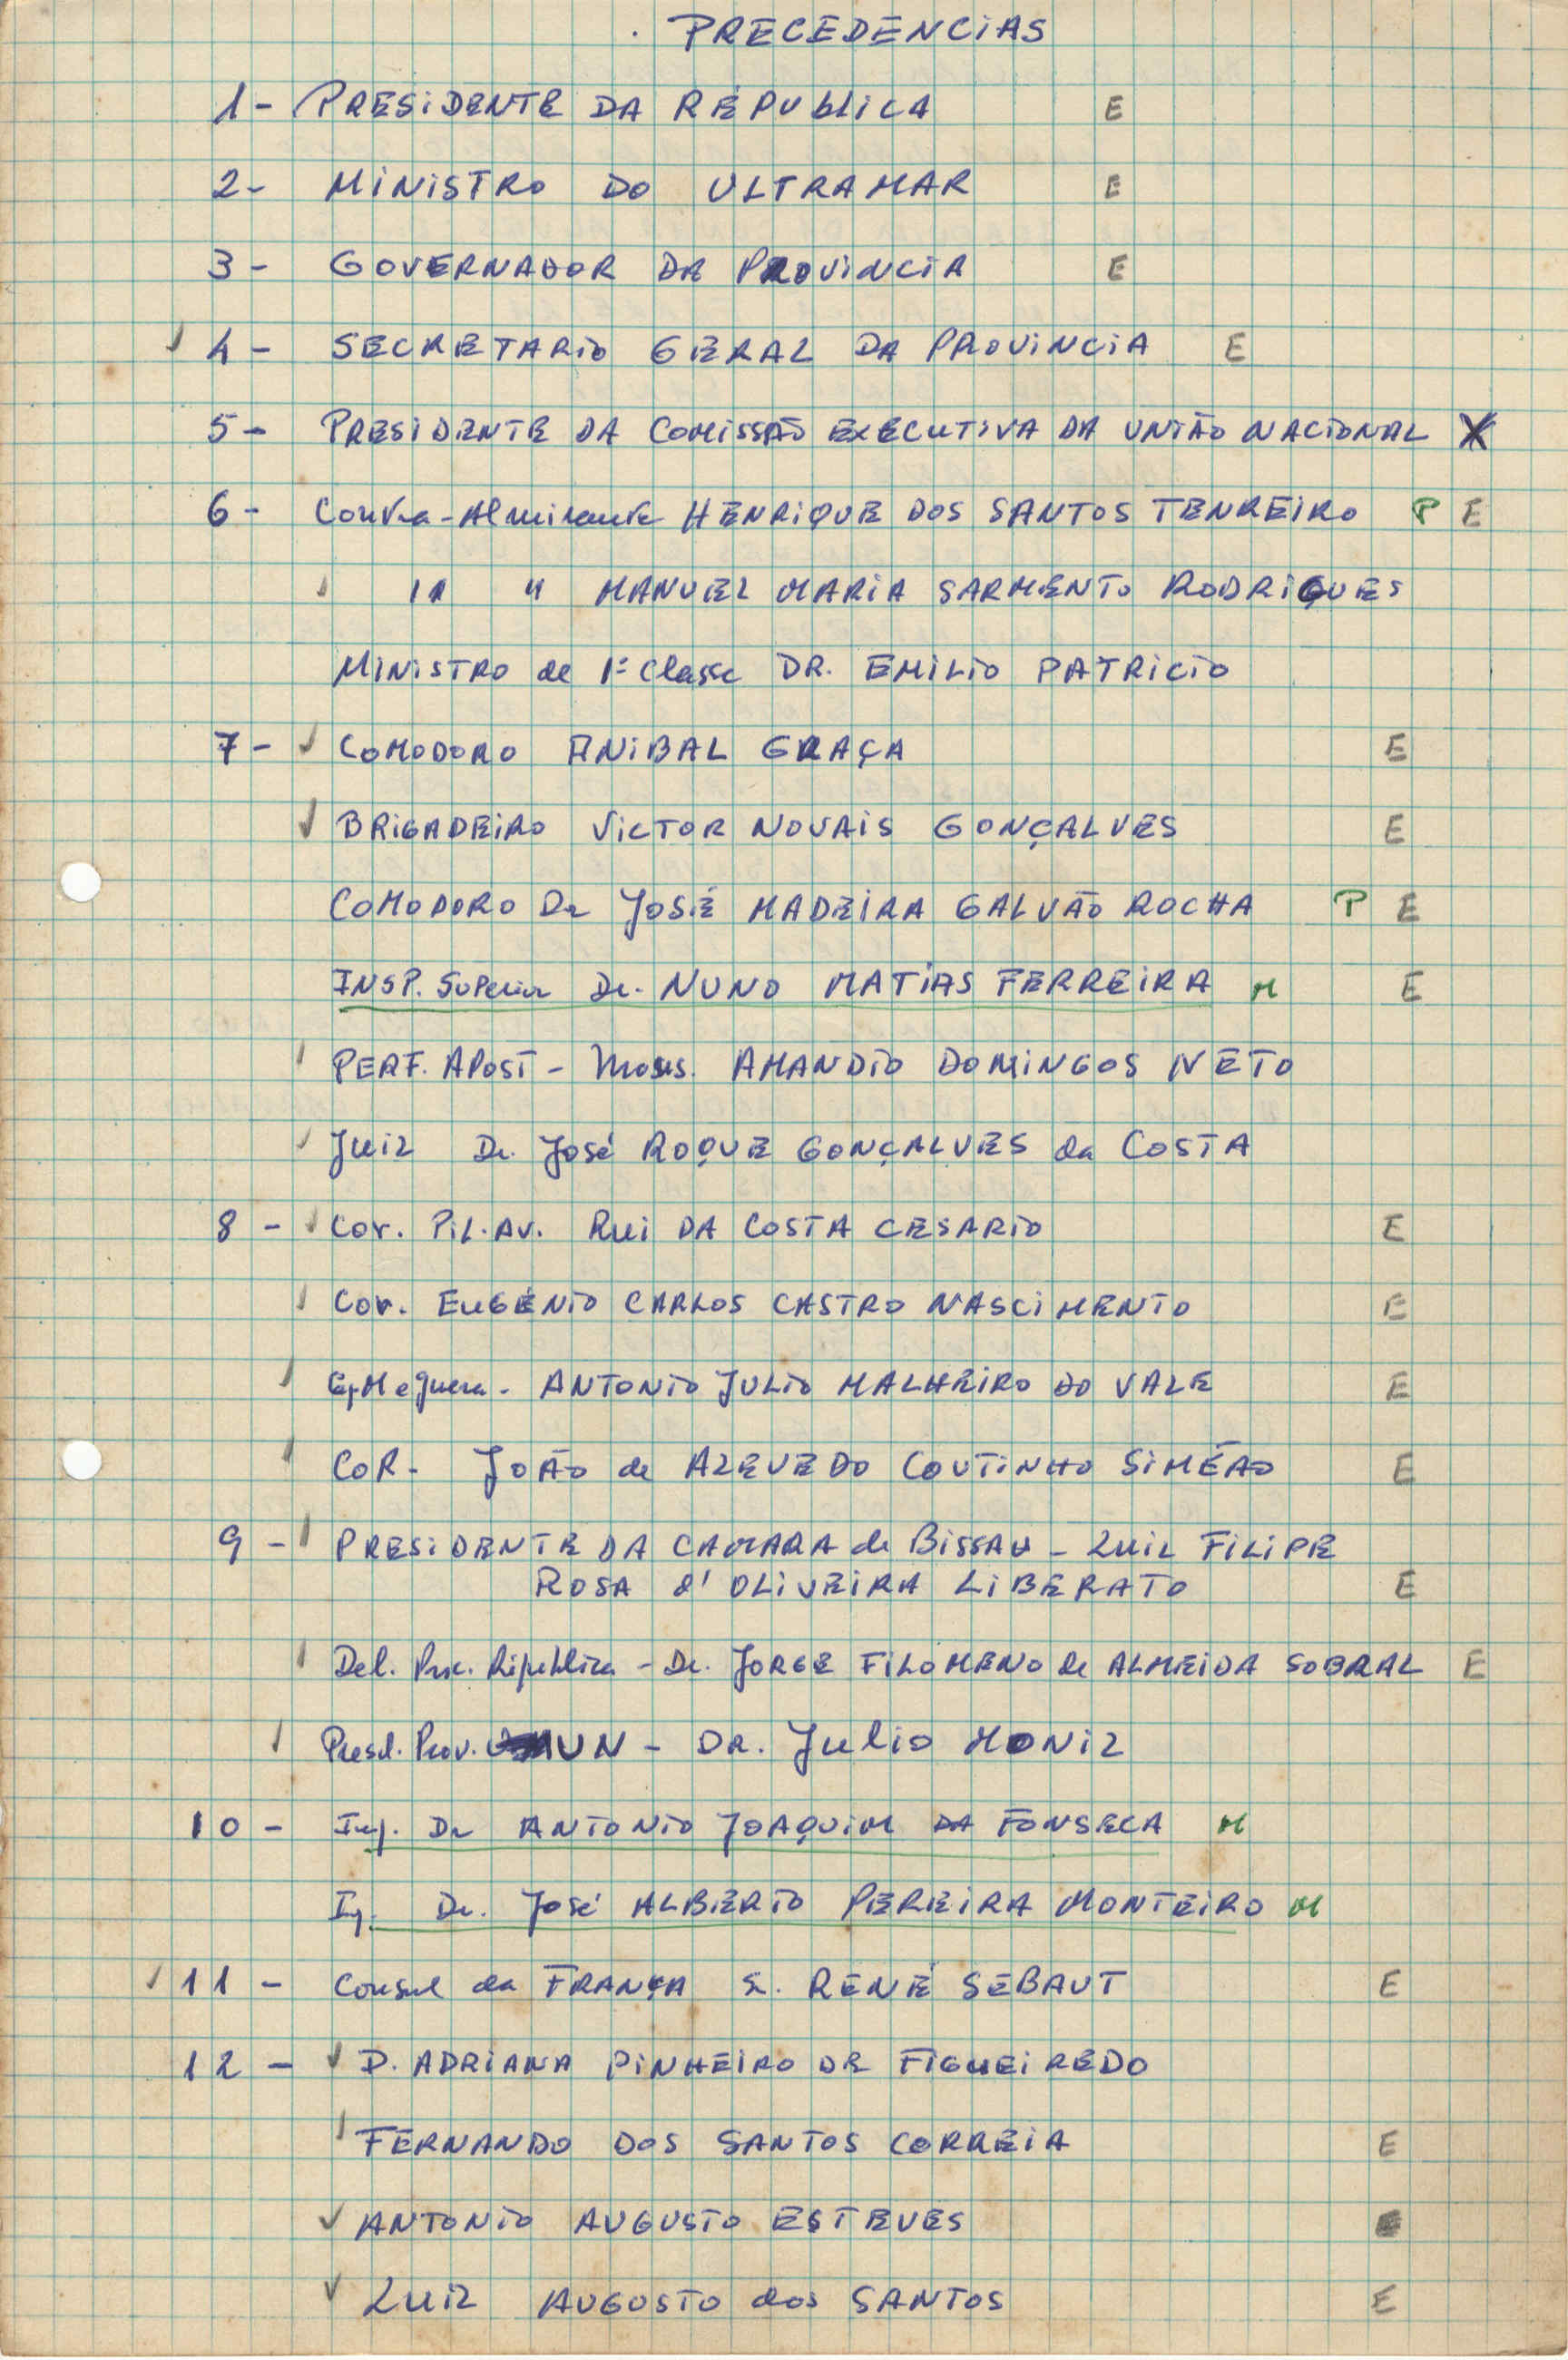 PRECEDENCIAS
1- PRESIDENTE DA REPUblICA E
2- MINISTRO DO ULTRAMAR E
3- GOVERNADOR DA PROVINCIA E
4- SECRETARIO GERAL DA PROVINCIA E
5- PRESIDENTE DA COMISSÃO EXECUTIVA DA UNIÃO NACIONAL X
6- Contra-Almirante HENRIQUE DOS SANTOS TENREIRO P E
" " MANUEL MARIA SARMENTO RODRIGUES
MINISTRO de 1ª Classe DR. EMILIO PATRICIO
7- COMODORO ANIBAL GRAÇA E
BRIGADEIRO VICTOR NOVAIS GONÇALVES E
COMODORO Dr JOSÉ MADEIRA GALVÃO ROCHA P E
INSP. Superior Dr. NUNO MATIAS FERREIRA M E
PERF. APOST - Mons. AMANDIO DOMINGOS NETO
Juiz Dr. José ROQUE GONÇALVES da COSTA
8 - Cor. PIL. AV. Rui DA COSTA CESARIO E
Cor. EUGÉNIO CARLOS CASTRO NASCIMENTO E
ANTONIO JULIO MALHEIRO DO VALE E
COR - JOÃO de AZEVEDO COUTINHO SIMÉÃO E
9 - PRESIDENTE DA CAMARA de BISSAU - LUIZ FILIPE
ROSA d' OLIVEIRA LIBERATO E
Del. Proc. Républica - Dr. JORGE FILOMENO de ALMEIDA SOBRAL E
Presd. Prov. UN - DR. Julio MONIZ
10 - Insp. Dr ANTONIO JOAQUIM DA FONSECA M
Dr. José ALBERTO PEREIRA MONTEIRO M
11 - Consul da FRANÇA S. RENÉ SEBAUT E
12 - D. ADRIANA PINHEIRO DE FIGUEIREDO
FERNANDO DOS SANTOS CORREIA E
ANTONIO AUGUSTO ESTEVES
LUIZ AUGUSTO dos SANTOS E